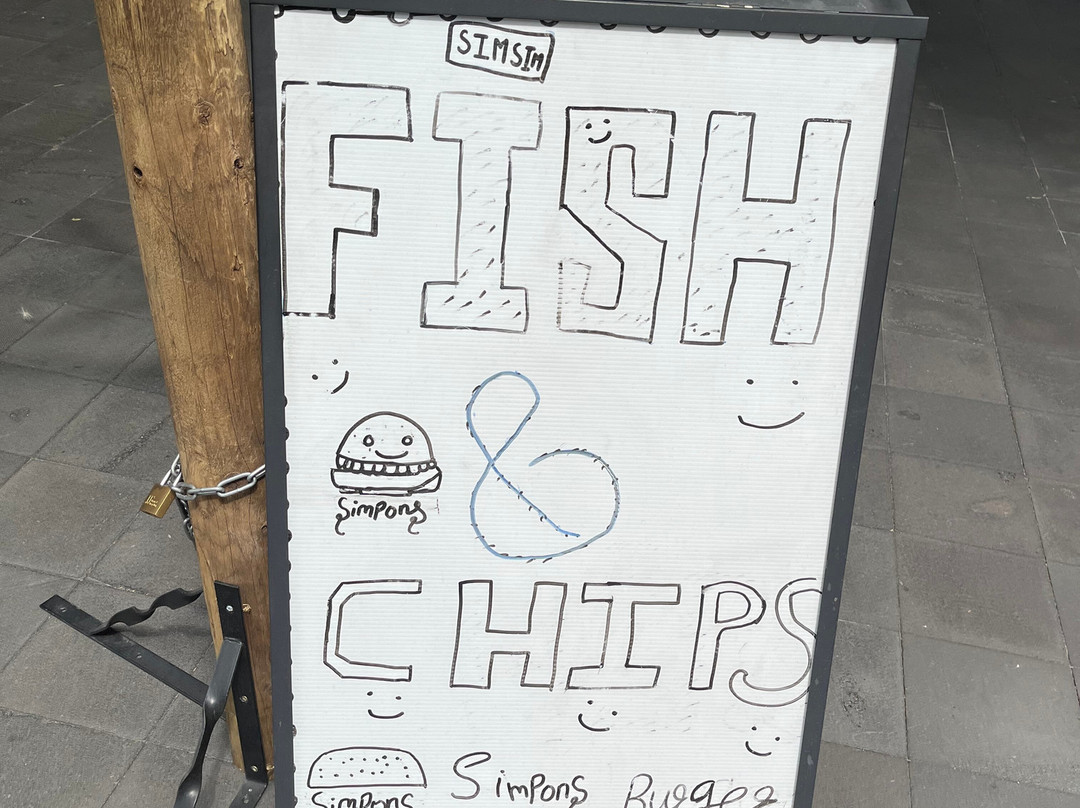 SIMSIM
FISH
&
Simpons
CHIPS
Simpons Burger
Simpons